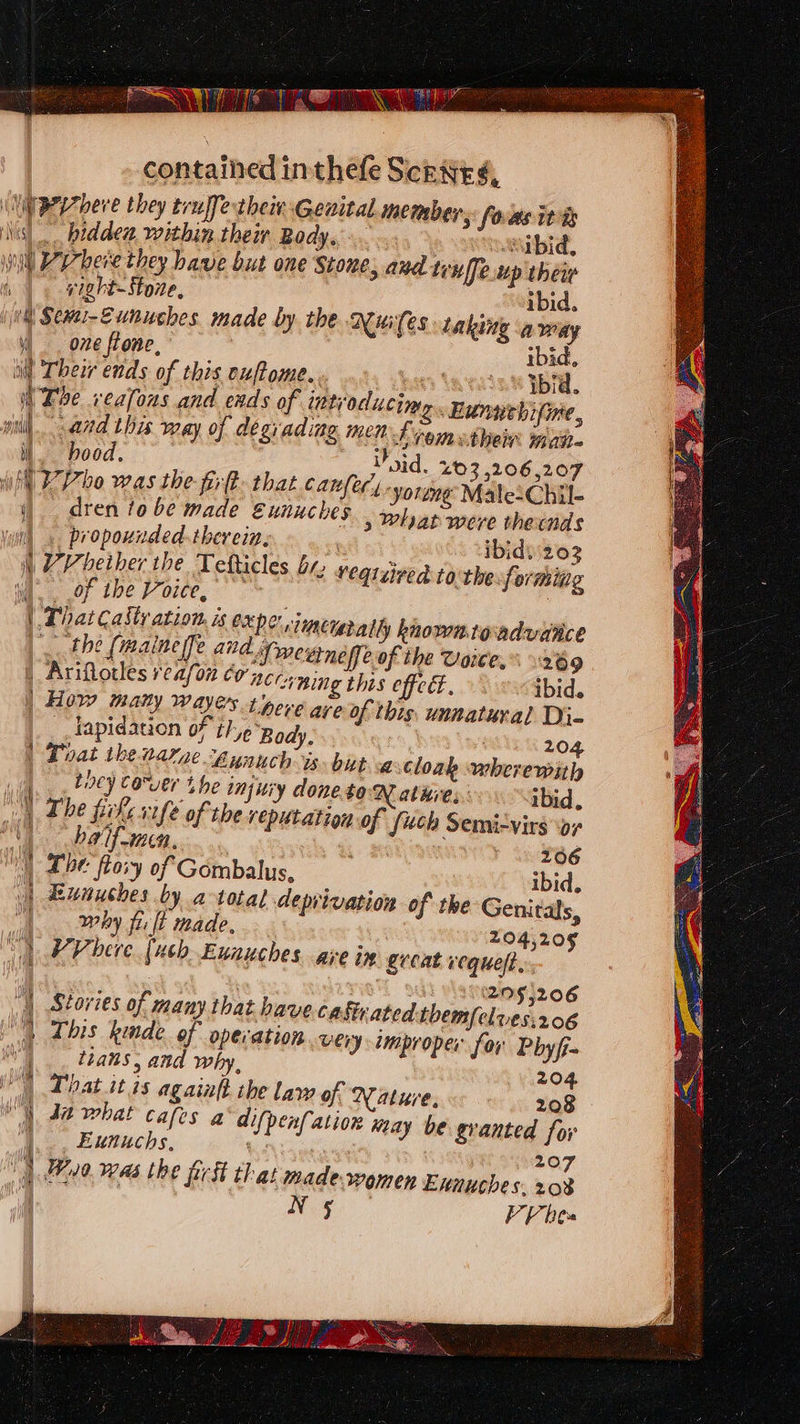 contained in theſe SCENES,
VVhere they truſſe their Genital member, ſo as it is
hidden within their Body. ibid.
VVhere they have but one Stone, and truſſe up their
right-ſtone, ibid.
Semi-Eunuches made by the Nuiſes taking away
one ſtone, ibid.
Their ends of this cuſtome. ibid.
The reaſons and ends of introducing Eunuchiſme,
and this way of degrading men from their man-
hood. ibid. 203,206,207
VVho was the firſt that cauſed young Male-Chil-
dren to be made Eunuches, what were the ends
propounded therein. ibid. 203
VVhether the Teſticles be required to the forming
of the Voice,
That Caſtration is experimentally known to advance
the ſmalneſſe and ſweetneſſe of the Voice. 209
Ariſtotles reaſon concerning this effect. ibid.
How many wayes there are of this unnatural Di-
lapidation of the Body. 204
That the name Eunuch is but a cloak wherewith
they cover the injury done to Nature. ibid.
The firſt riſe of the reputation of ſuch Semi-virs or
half-men. 206
The ſtory of Gombalus, ibid.
Eunuches by a total deprivation of the Genitals,
why firſt made. 204,205
VVhere ſuch Eunuches are in great requeſt.
205,206
Stories of many that have caſtrated themſelves. 206
This kinde of operation very improper for Phyſi-
tians, and why, 204
That it is againſt the law of Nature. 208
In what caſes a diſpenſation may be granted for
Eunuchs. 207
Who was the firſt that made women Eunuches, 208
N 5 VVhe-